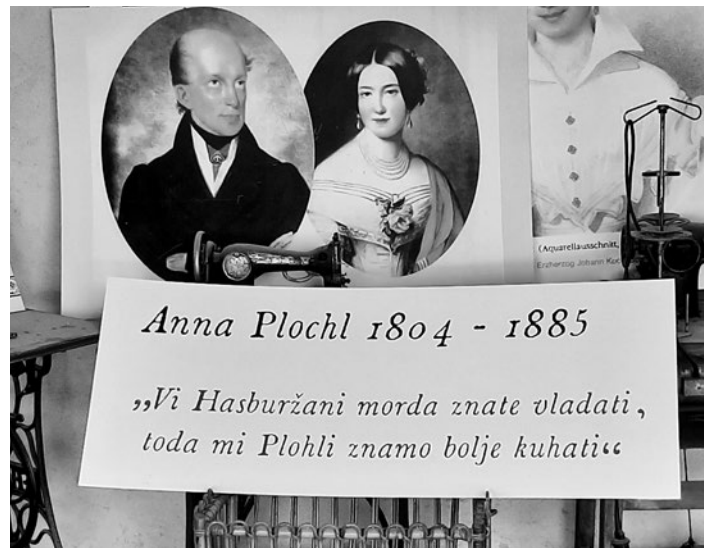 (Aquarellausschnitt,
Erzherzog Johann
Anna Plochl 1804 - 1885
„Vi Hasburžani morda znate vladati,
toda mi Plohli znamo bolje kuhati“